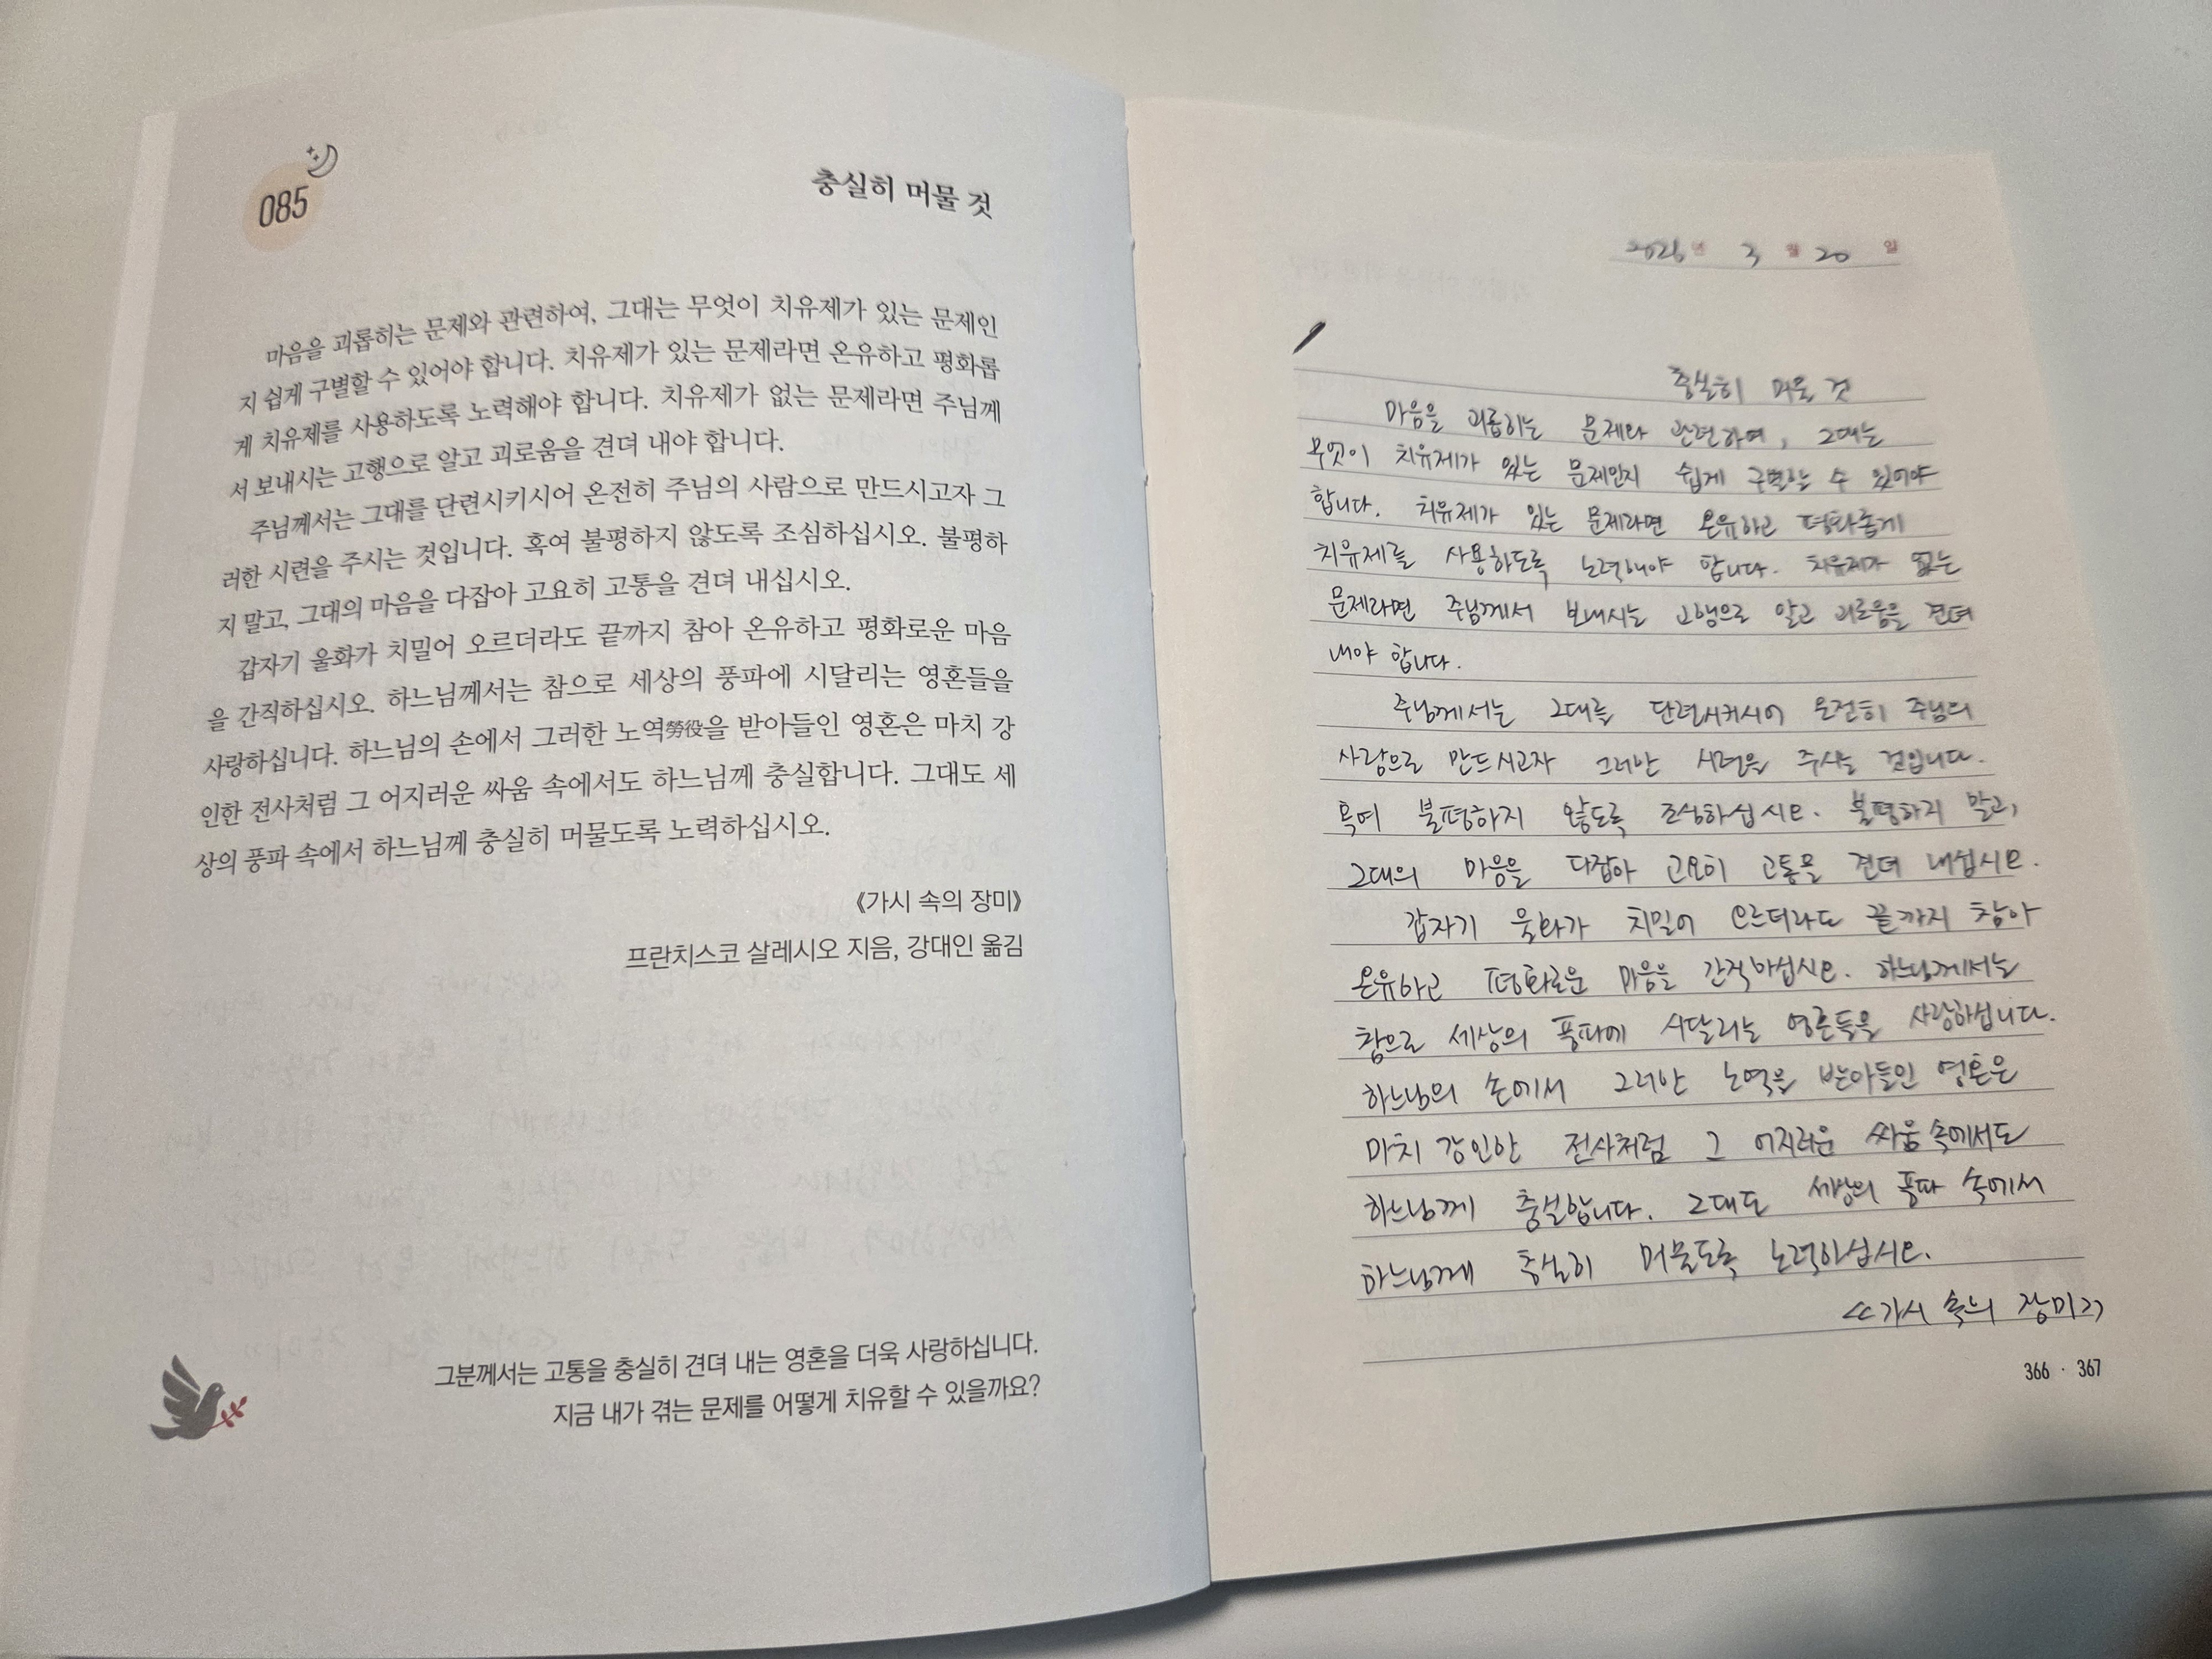 085
충실히 머물 것
마음을 괴롭히는 문제와 관련하여, 그대는 무엇이 치유제가 있는 문제인
지 쉽게 구별할 수 있어야 합니다. 치유제가 있는 문제라면 온유하고 평화롭
게 치유제를 사용하도록 노력해야 합니다. 치유제가 없는 문제라면 주님께
서 보내시는 고행으로 알고 괴로움을 견뎌 내야 합니다.
주님께서는 그대를 단련시키시어 온전히 주님의 사람으로 만드시고자 그
러한 시련을 주시는 것입니다. 혹여 불평하지 않도록 조심하십시오. 불평하
지 말고, 그대의 마음을 다잡아 고요히 고통을 견뎌 내십시오.
갑자기 울화가 치밀어 오르더라도 끝까지 참아 온유하고 평화로운 마음
을 간직하십시오. 하느님께서는 참으로 세상의 풍파에 시달리는 영혼들을
사랑하십니다. 하느님의 손에서 그러한 노역勞役을 받아들인 영혼은 마치 강
인한 전사처럼 그 어지러운 싸움 속에서도 하느님께 충실합니다. 그대도 세
상의 풍파 속에서 하느님께 충실히 머물도록 노력하십시오.
《가시 속의 장미》
프란치스코 살레시오 지음, 강대인 옮김
그분께서는 고통을 충실히 견뎌 내는 영혼을 더욱 사랑하십니다.
지금 내가 겪는 문제를 어떻게 치유할 수 있을까요?
2026년 3월 20일
충실히 머물 것
마음을 괴롭히는 문제와 관련하여, 그대는
무엇이 치유제가 있는 문제인지 쉽게 구별할 수 있어야
합니다. 치유제가 있는 문제라면 온유하고 평화롭게
치유제를 사용하도록 노력해야 합니다. 치유제가 없는
문제라면 주님께서 보내시는 고행으로 알고 괴로움을 견뎌
내야 합니다.
주님께서는 그대를 단련시키시어 온전히 주님의
사람으로 만드시고자 그러한 시련을 주시는 것입니다.
혹여 불평하지 않도록 조심하십시오. 불평하지 말고,
그대의 마음을 다잡아 고요히 고통을 견뎌 내십시오.
갑자기 울화가 치밀어 오르더라도 끝까지 참아
온유하고 평화로운 마음을 간직하십시오. 하느님께서는
참으로 세상의 풍파에 시달리는 영혼들을 사랑하십니다.
하느님의 손에서 그러한 노역을 받아들인 영혼은
마치 강인한 전사처럼 그 어지러운 싸움 속에서도
하느님께 충실합니다. 그대도 세상의 풍파 속에서
하느님께 충실히 머물도록 노력하십시오.
<<가시 속의 장미>>
366 · 367